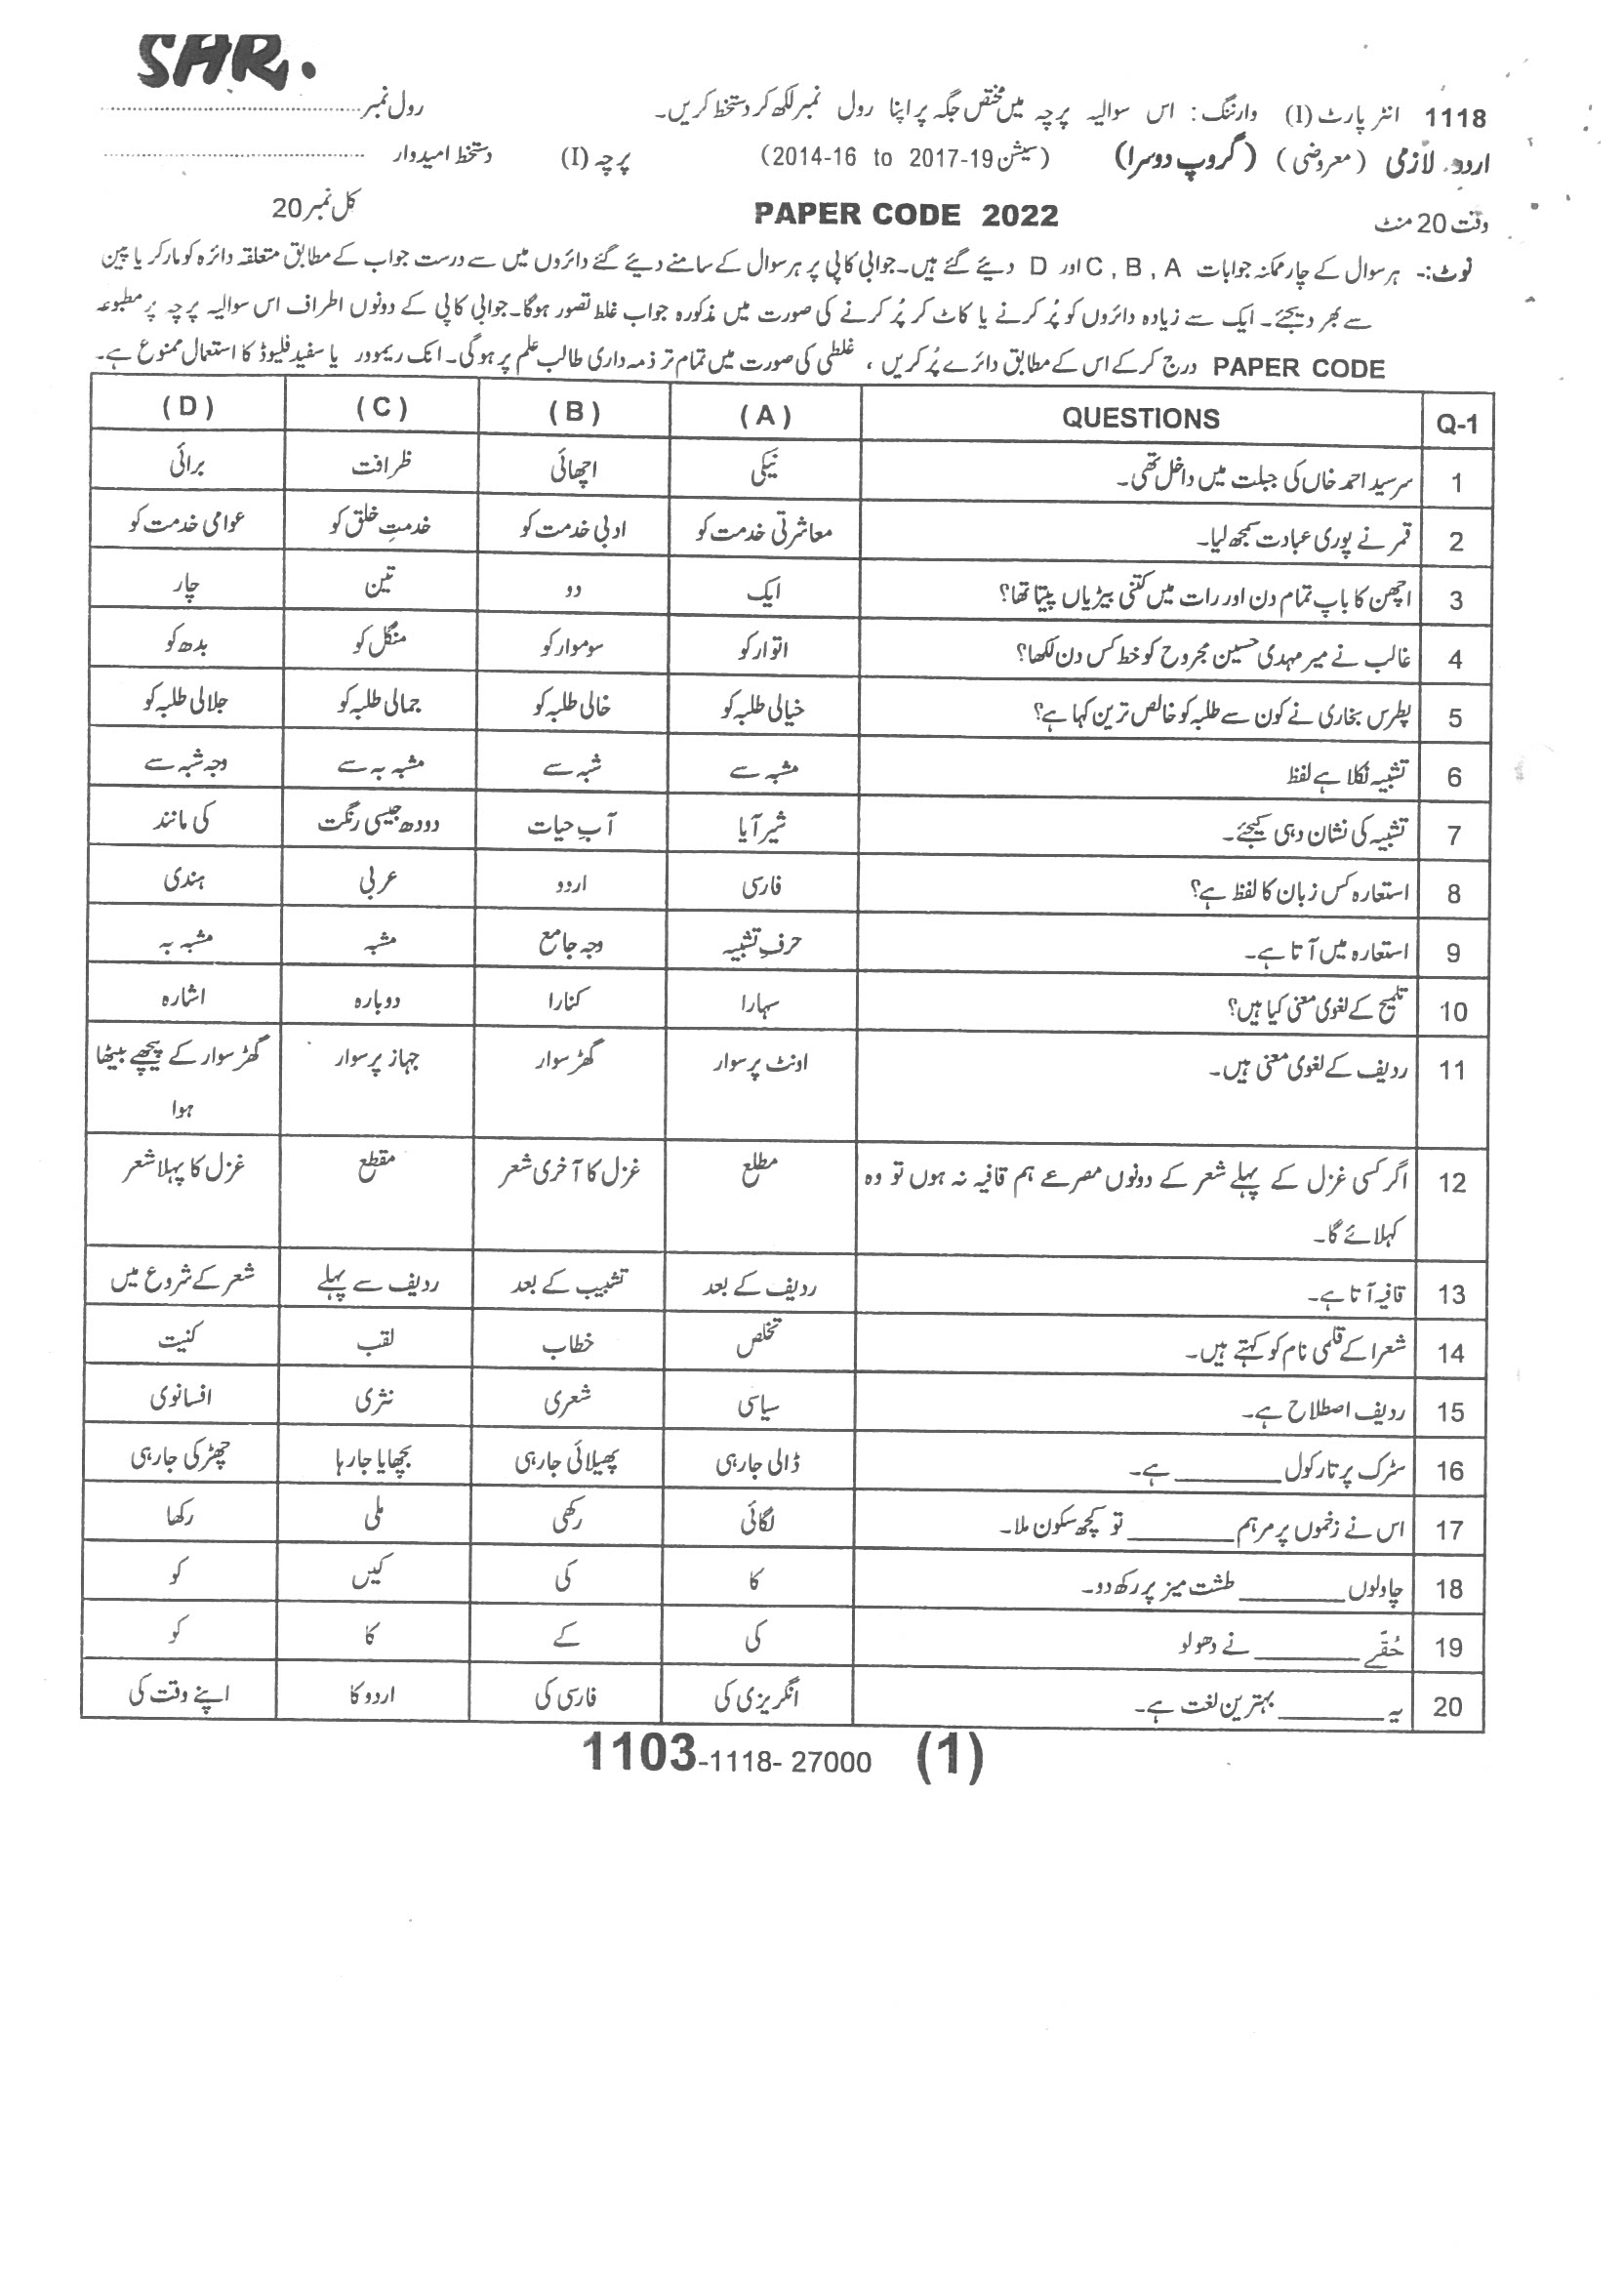 SHR.
1118 انٹر پارٹ (I) وارننگ: اس سوالیہ پرچہ میں مختص جگہ پر اپنا رول نمبر لکھ کر دستخط کریں۔ رول نمبر
اردو لازمی (معروضی) (گروپ دوسرا) (سیشن 2014-16 to 2017-19) پرچہ (I) دستخط امیدوار
وقت 20 منٹ PAPER CODE 2022 کل نمبر 20
نوٹ:۔ ہر سوال کے چار ممکنہ جوابات A , B , C اور D دیئے گئے ہیں۔ جوابی کاپی پر ہر سوال کے سامنے دیئے گئے دائروں میں سے درست جواب کے مطابق متعلقہ دائرہ کو مارکر یا پین
سے بھر دیجئے۔ ایک سے زیادہ دائروں کو پُر کرنے یا کاٹ کر پُر کرنے کی صورت میں مذکورہ جواب غلط تصور ہوگا۔ جوابی کاپی کے دونوں اطراف اس سوالیہ پرچہ پر مطبوعہ
PAPER CODE درج کر کے اس کے مطابق دائرے پُر کریں ، غلطی کی صورت میں تمام تر ذمہ داری طالب علم پر ہوگی۔ انک ریموور یا سفید فلیوڈ کا استعمال ممنوع ہے۔
Q-1 QUESTIONS (A) (B) (C) (D)
1 سرسید احمد خاں کی جبلت میں داخل تھی۔ نیکی اچھائی ظرافت برائی
2 قمر نے پوری عبادت سمجھ لیا۔ معاشرتی خدمت کو ادبی خدمت کو خدمتِ خلق کو عوامی خدمت کو
3 اچھن کا باپ تمام دن اور رات میں کتنی بیڑیاں پیتا تھا؟ ایک دو تین چار
4 غالب نے میر مہدی حسین مجروح کو خط کس دن لکھا؟ اتوار کو سوموار کو منگل کو بدھ کو
5 پطرس بخاری نے کون سے طلبہ کو خالص ترین کہا ہے؟ خیالی طلبہ کو خالی طلبہ کو جمالی طلبہ کو جلالی طلبہ کو
6 تشبیہ نکلا ہے لفظ مشبہ سے شبہ سے مشبہ بہ سے وجہ شبہ سے
7 تشبیہ کی نشان دہی کیجئے۔ شیر آیا آبِ حیات دودھ جیسی رنگت کی مانند
8 استعارہ کس زبان کا لفظ ہے؟ فارسی اردو عربی ہندی
9 استعارہ میں آتا ہے۔ حرفِ تشبیہ وجہ جامع مشبہ مشبہ بہ
10 تلمیح کے لغوی معنی کیا ہیں؟ سہارا کنارا دوبارہ اشارہ
11 ردیف کے لغوی معنی ہیں۔ اونٹ پر سوار گھڑ سوار جہاز پر سوار گھڑ سوار کے پیچھے بیٹھا
ہوا
12 اگر کسی غزل کے پہلے شعر کے دونوں مصرعے ہم قافیہ نہ ہوں تو وہ مطلع غزل کا آخری شعر مقطع غزل کا پہلا شعر
کہلائے گا۔
13 قافیہ آتا ہے۔ ردیف کے بعد تشبیب کے بعد ردیف سے پہلے شعر کے شروع میں
14 شعرا کے قلمی نام کو کہتے ہیں۔ تخلص خطاب لقب کنیت
15 ردیف اصطلاح ہے۔ سیاسی شعری نثری افسانوی
16 سڑک پر تارکول ______ ہے۔ ڈالی جا رہی پھیلائی جا رہی بچھایا جا رہا چھڑکی جا رہی
17 اس نے زخموں پر مرہم ______ تو کچھ سکون ملا۔ لگائی رکھی ملی رکھا
18 چاولوں ______ طشت میز پر رکھ دو۔ کا کی کیں کو
19 حُقّے ______ نے دھو لو کی کے کا کو
20 یہ ______ بہترین لغت ہے۔ انگریزی کی فارسی کی اردو کا اپنے وقت کی
1103-1118- 27000 (1)